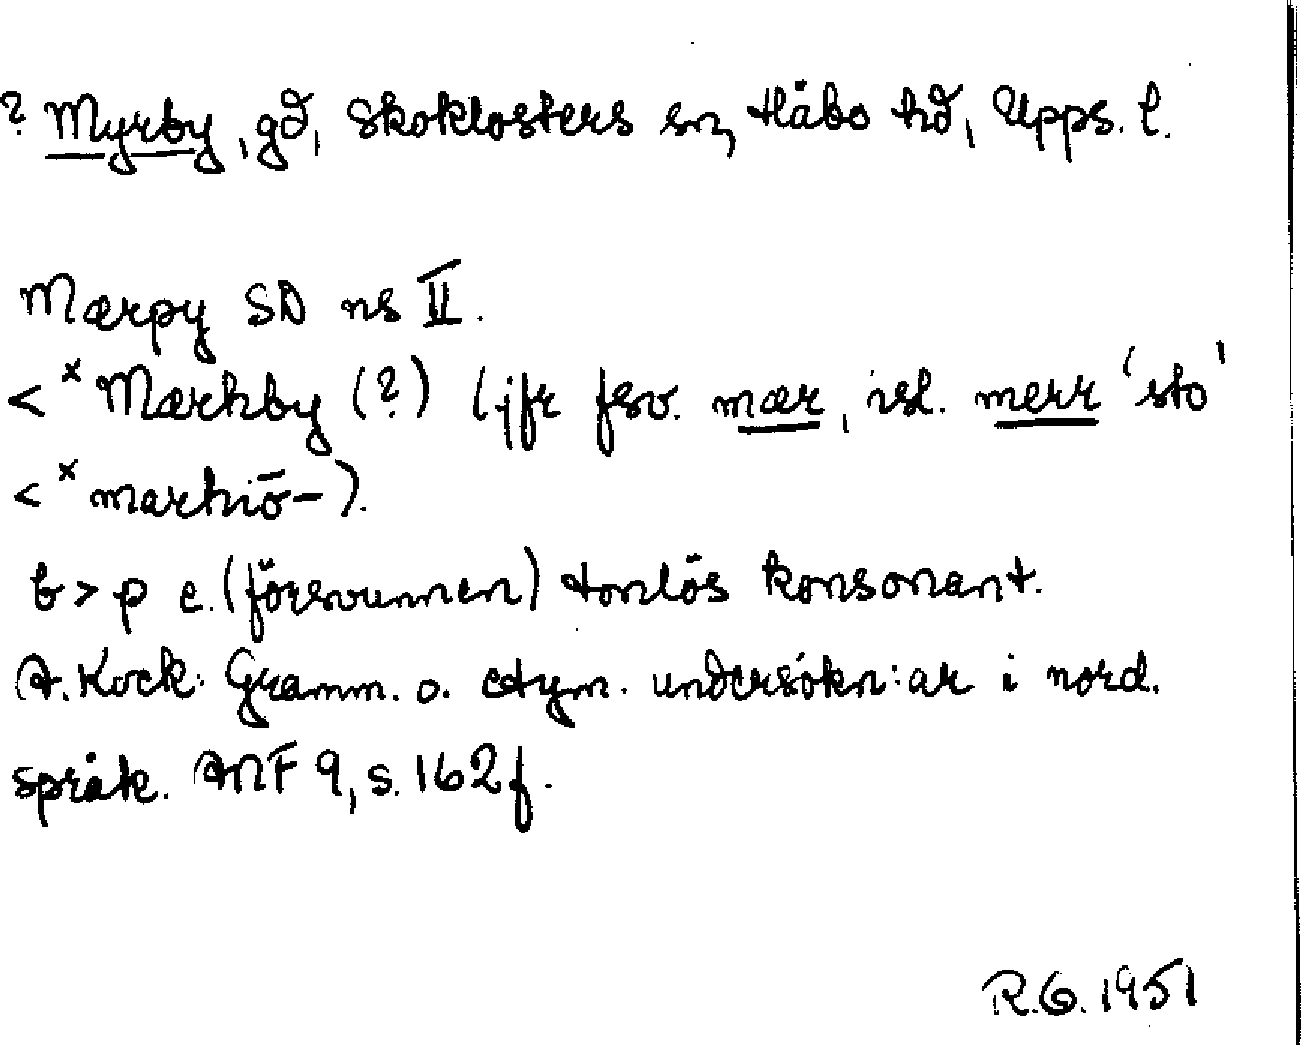 ? Myrby, gd, Skoklosters sn, Håbo hd, Upps. l.
Mærpy SD ns II.
< *Mærhby (?) (jfr fsv. mær, isl. merr 'sto'
< *marhiō-).
b > p e. (försvunnen) tonlös konsonant.
A. Kock: Gramm. o. etym. undersökn:ar i nord.
språk. ANF 9, s. 162 f.
R.G. 1951